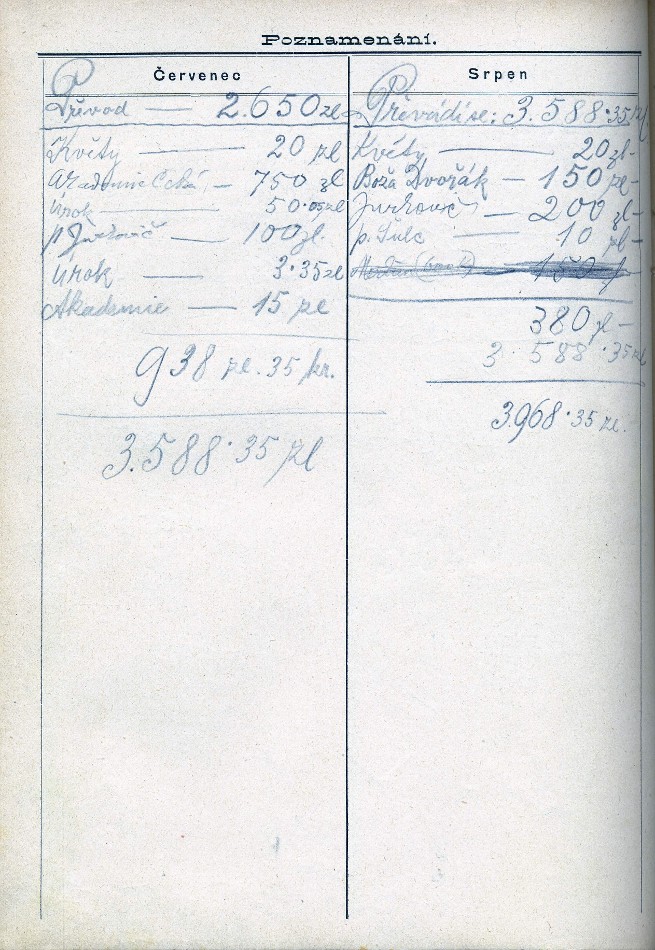 Poznamenání.
Červenec
Převod — 2.650 zl
Květy — 20 zl
Akademie Česká — 750 zl
Úrok — 50·05 zl
p Jurkovič — 100 zl.
Úrok — 3·35 zl
Akademie — 15 zl
938 zl. 35 kr.
3.588·35 zl
Srpen
Převádí se: 3.588·35 zl
Květy — 20 zl-
Boža Dvořák — 150 zl-
Jurkovič — 200 zl-
p. Šulc — 10 zl-
380 zl-
3·588·35 zl
3.968·35 zl.